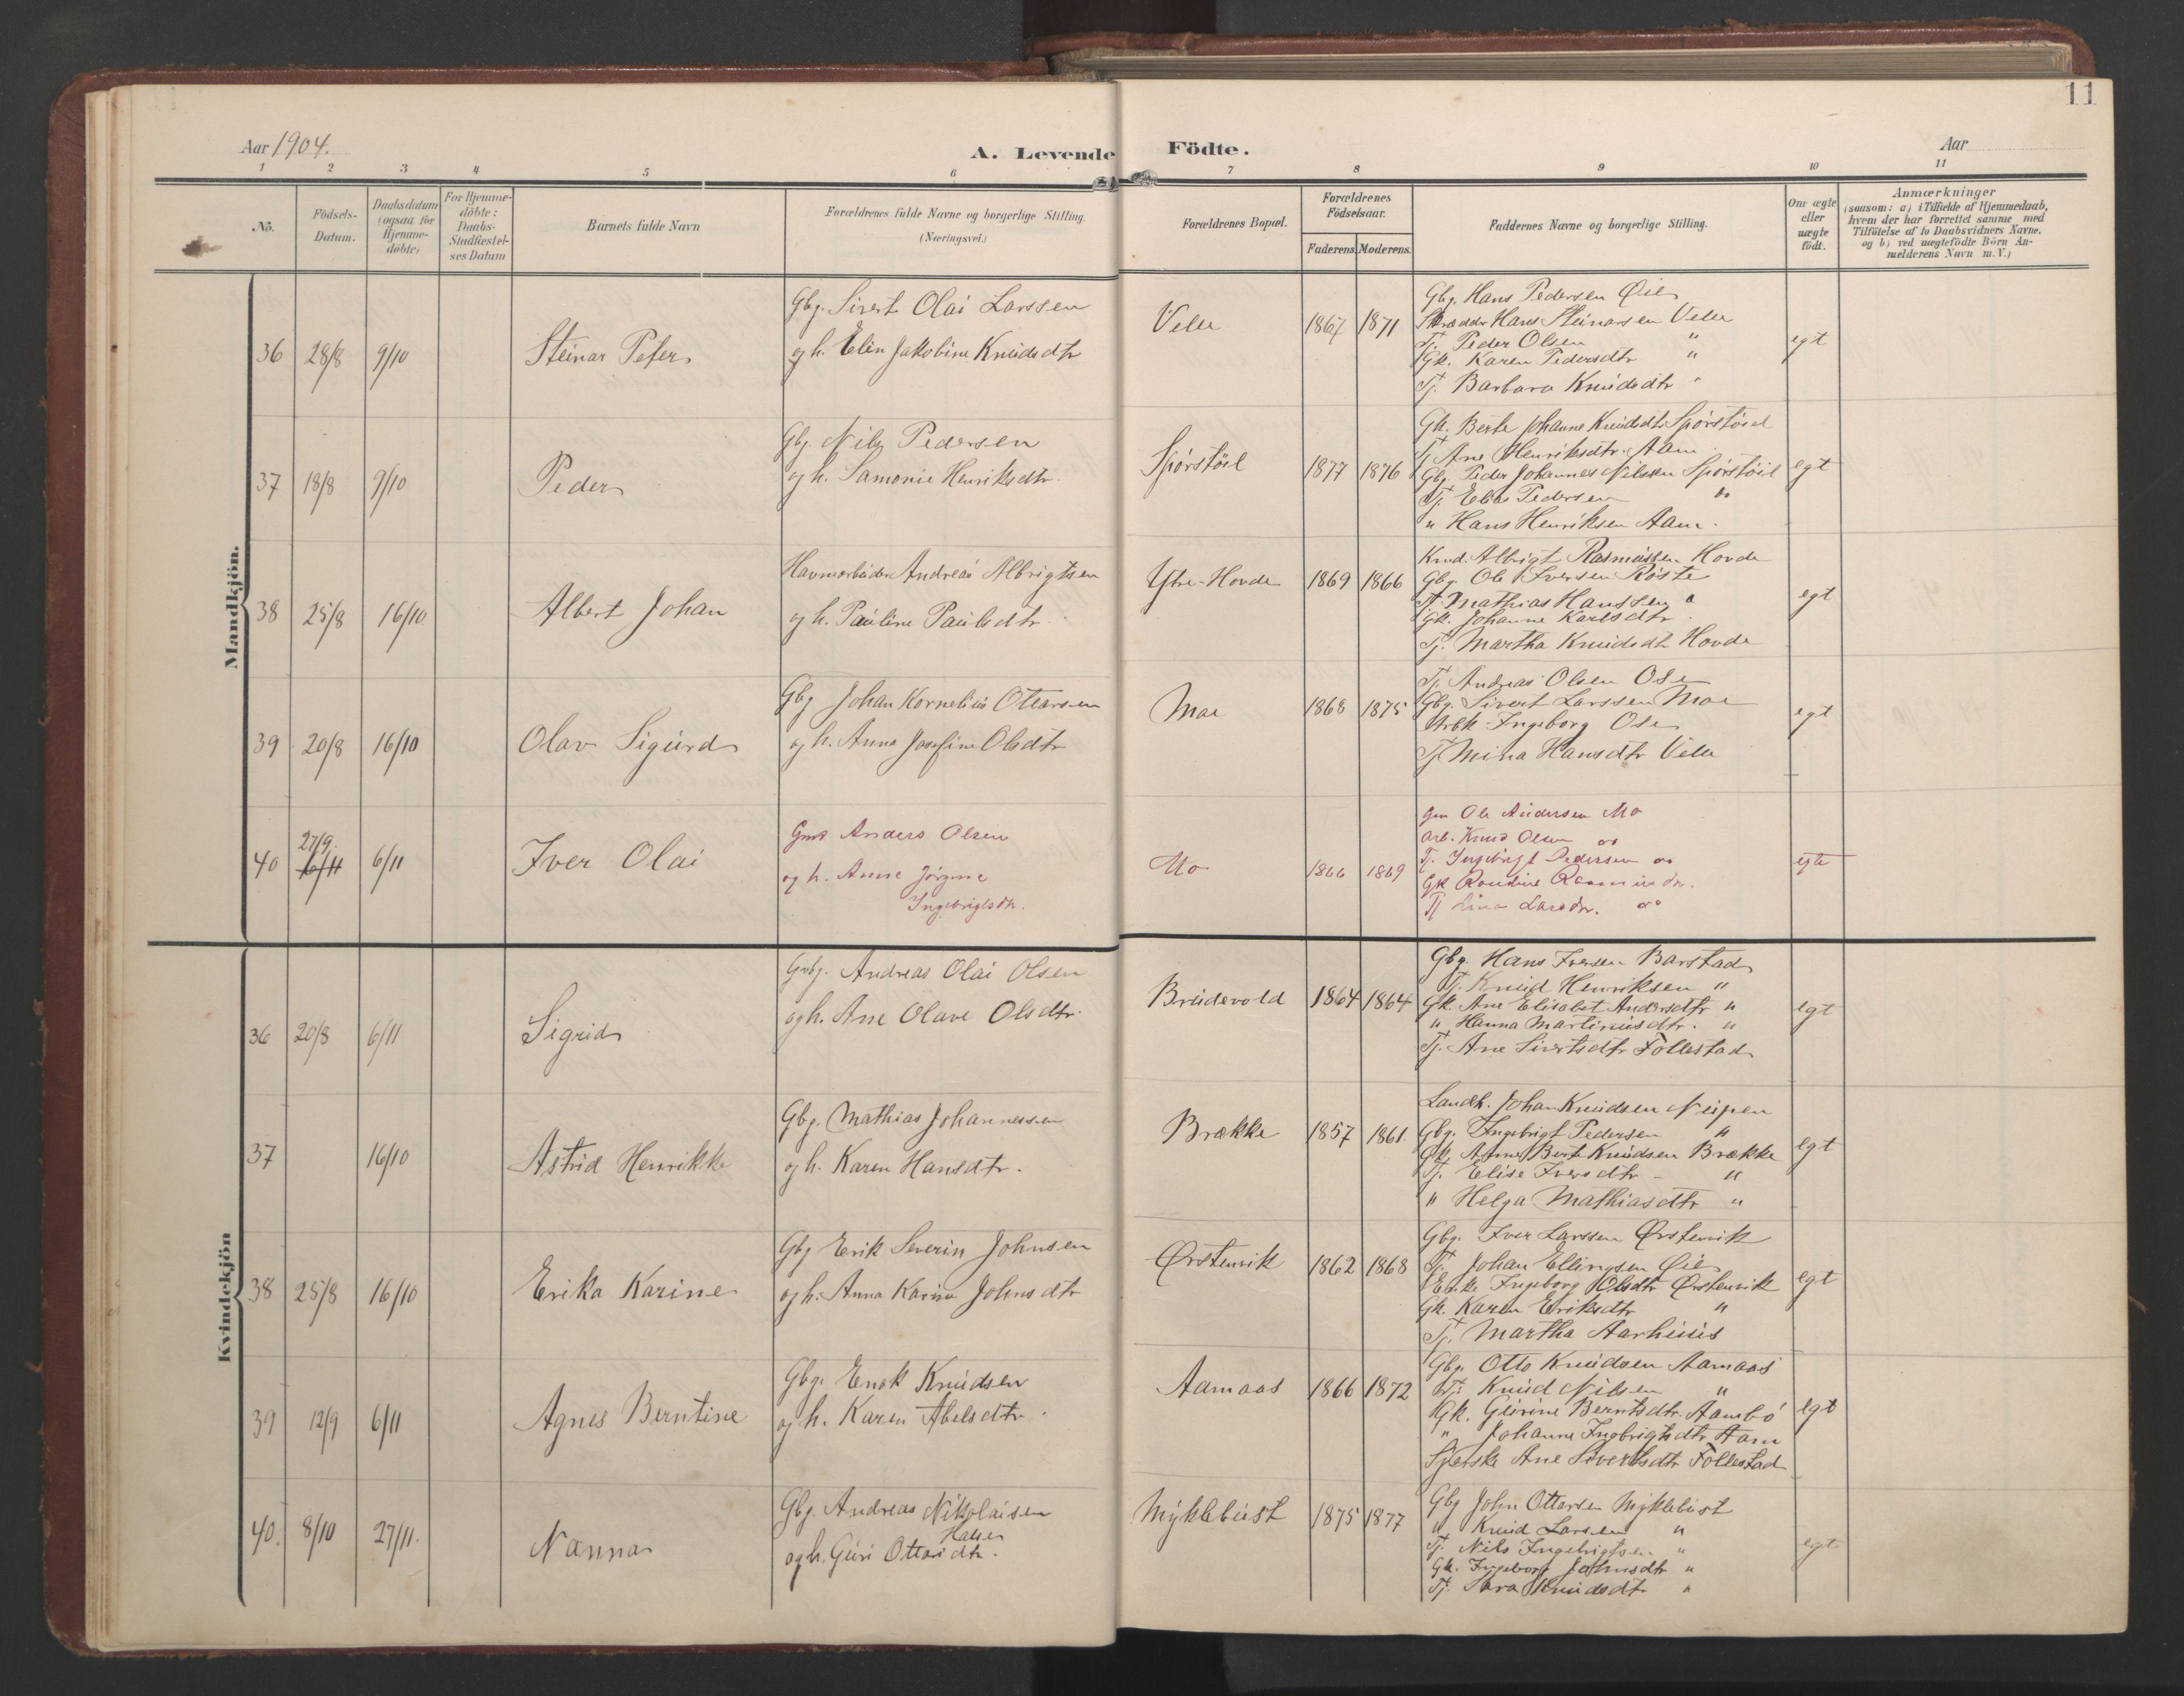 11
Aar 1904.
A. Levende Födte.
Aar
1 2 3 4 5 6 7 8 9 10 11
No.
Födsels-Datum.
Daabsdatum (ogsaa for Hjemme-döbte)
For Hjemme-döbte: Daabs-Stadfæstel-ses Datum
Barnets fulde Navn
Forældrenes fulde Navne og borgerlige Stilling.
(Næringsvei.)
Forældrenes Bopæl.
Forældrenes Födselsaar.
Faderens. Moderens.
Faddernes Navne og borgerlige Stilling.
Om ægte eller uægte födt.
Anmærkninger
(saasom: a) i Tilfælde af Hjemmedaab, hvem der har forrettet samme med Tilföielse af to Daabsvidners Navne, og b) ved uægtefödte Börn An-melderens Navn m. V.)
Mandkjön.
36 28/8 9/10 Steinar Peter
Gbg. Sivert Olai Larssen
og h. Elin Jakobine Knudsdtr
Velle 1867 1871
Gbg. Hans Pedersen Øie
Skrædder Hans Steinarsen Velle
Tj. Peder Olsen "
Gk. Karen Pedersdtr "
Tj. Barbara Knudsdtr "
egt
37 18/8 9/10 Peder
Gbg Nils Pedersen
og h. Samonie Henriksdtr.
Spörstöil 1877 1876
Gk. Berte Johanne Knudsdtr Spörstöil
Tj Ane Henriksdtr. Aam
Gbg. Peder Johannes Nilssen Spörstöil
Tj. Elias Pedersen "
" Hans Henriksen Aam.
egt
38 25/8 16/10 Albert Johan
Havnearbeider Andreas Albrigtsen
og h. Pauline Paulsdtr.
Ytre-Hovde 1869 1866
Kaard. Albrigt Rasmussen Hovde
Gbg. Ole Iversen Röste
Tj. Mathias Hanssen "
Gk. Johanne Karlsdtr
Tj. Martha Knudsdtr Hovde
egt
39 20/8 16/10 Olav Sigurd
Gbg Johan Kornelius Ottarsen
og h. Anna Josefine Olsdtr
Moe 1868 1875
Tj. Andreas Olsen Ose
Gbg. Sivert Larssen Moe
Ingeborg Ose
Tj Mina Hansdtr Velle
egt
40 27/9. 6/11 6/11 Iver Olai
Gmd Anders Olsen
og h. Anne Jörgine
Ingebrigtsdtr.
Mo 1866 1869
Gm Ole Andersen Mo
Arb. Knud Olsen do
Tj. Ingebrigt Pedersen do
Gk Rasmusdr.
Tj Lina Larsdr. do
egte
Kvindekjön
36 20/8 6/11 Sigrid
Gbg. Andreas Olai Olsen
og h. Ane Olave Olsdtr.
Brudevold 1864 1864
Gbg. Hans Iversen Barstad
Tj. Knud Henriksen "
Gk. Ane Elisabet Andersdtr "
" Hanna Martinusdtr. "
Tj. Ane Sivertsdtr Follestad
egt
37 16/10 Astrid Henrikke
Gbg. Mathias Johannessen
og h. Karen Hansdtr.
Brække 1857 1861.
Landh. Johan Knudsen Nupen
Gbg. Ingebrigt Pedersen "
Gk. Anne Berte Knudsen Brække
Tj. Elise Iversdtr - "
" Helga Mathiasdtr "
egt
38 25/8 16/10 Erika Karine
Gbg Erik Severin Johnsen
og h. Anna Karine Johnsdtr
Örstenvik 1862 1868
Gbg. Iver Larssen Örstenvik
Tj. Johan Ellingsen Øie
Enke Ingeborg Olsdtr Örstenvik
Gk. Karen Eriksdtr "
Tj. Martha Aarhuus
egt
39 12/9 6/11 Agnes Berntine
Gbg. Enok Knudsen
og h. Karen Abelsdtr.
Aamaas 1866 1872
Gbg. Otto Knudsen Aamaas
Tj. Knud Nilsen "
Gk. Gurine Berntsdtr. Aambö
" Johanne Ingebrigtsdtr Aam
Sjerske Ane Sivertsdtr Follestad
egt
40. 8/10 27/11. Nanna
Gbg. Andreas Nikolaisen
Halsen
og h. Guri Ottarsdtr.
Myklebust 1875 1877
Gbg John Ottarsen Myklebust
" Knud Larsen "
Tj. Nils Ingebrigtsen "
Gk. Ingeborg Johnsdtr "
Tj. Sara Knudsdtr "
egt